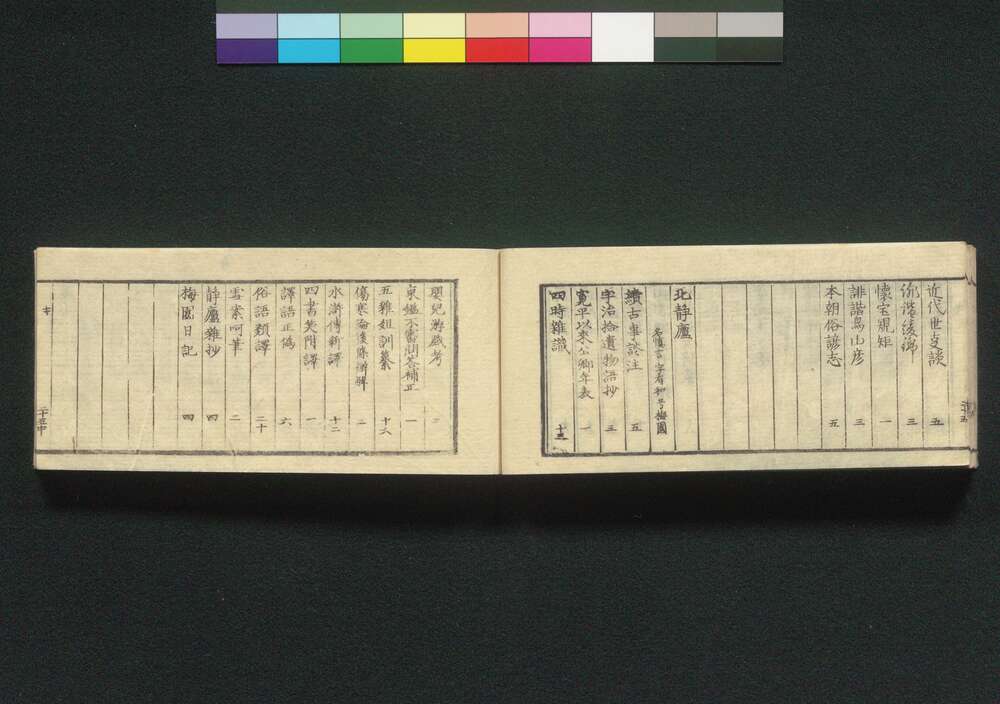 近代世事談 五
俳諧綾錦 三
懐宝規矩 一
誹諧鳥山彦 三
本朝俗諺志 五
北静廬
名慎言 字有和 号梅園
續古事談注 五
宇治拾遺物語抄 三
寛平以来公卿年表 一
四時雑識 十五
嬰児游戯考 三
東鑑不審問答補正 一
五雑俎訓纂 十六
傷寒論後條辨解 二
水滸傳新譯 十二
四書笑門譯 一
譯語正偽 六
俗語類譯 二十
雪窓呵筆 二
静廬雜抄 四
梅園日記 四
キ
二十五中